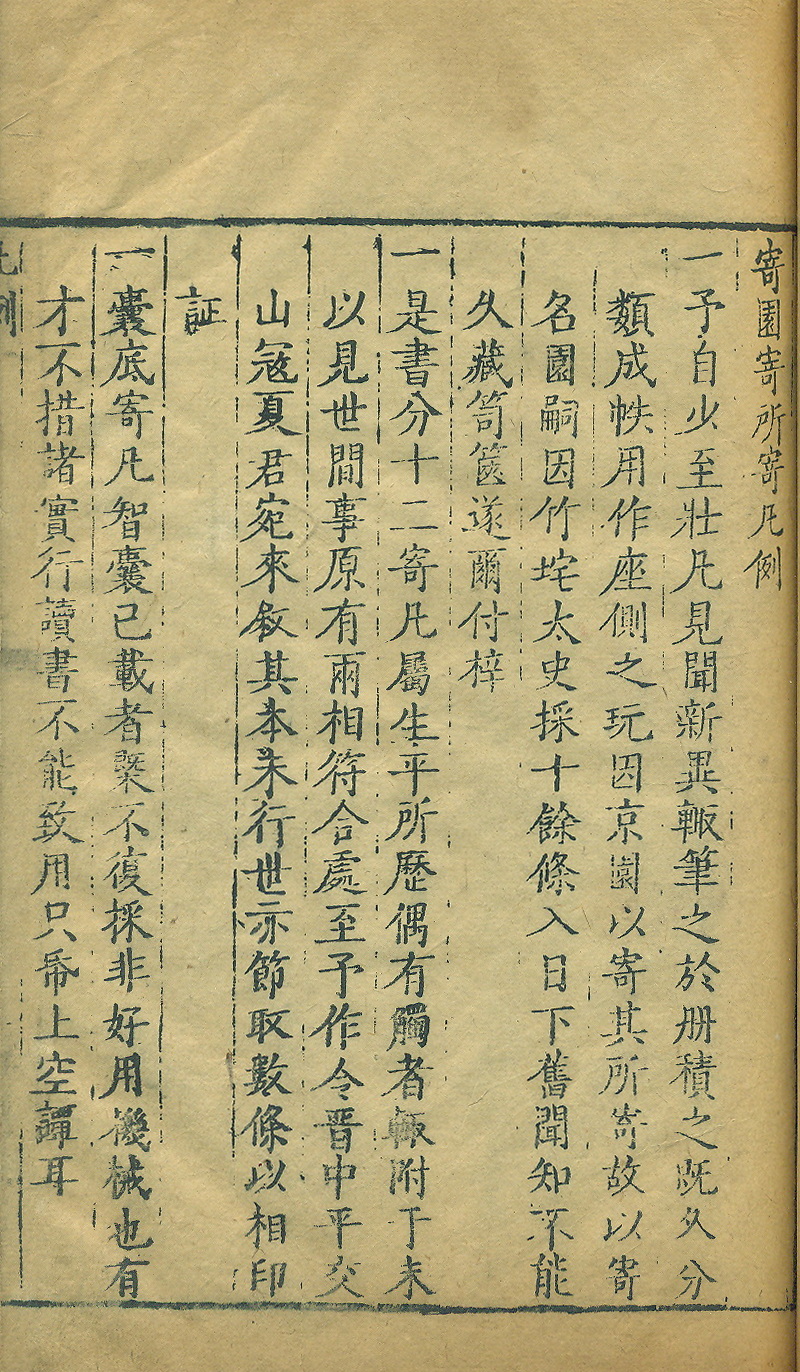 寄園寄所寄凡例
一予自少至壯凡見聞新異輙筆之於册積之既久分
類成帙用作座側之玩因京園以寄其所寄故以寄
名園嗣因竹垞太史採十餘條入日下舊聞知不能
久藏笥篋遂爾付梓
一是書分十二寄凡屬生平所歷偶有觸者輙附于末
以見世間事原有兩相符合處至予作令晋中平交
山冦夏君宛來敘其本末行世亦節取數條以相印
証
一囊底寄凡智囊已載者槩不復採非好用機械也有
才不措諸實行讀書不能致用只帋上空譚耳
凡例